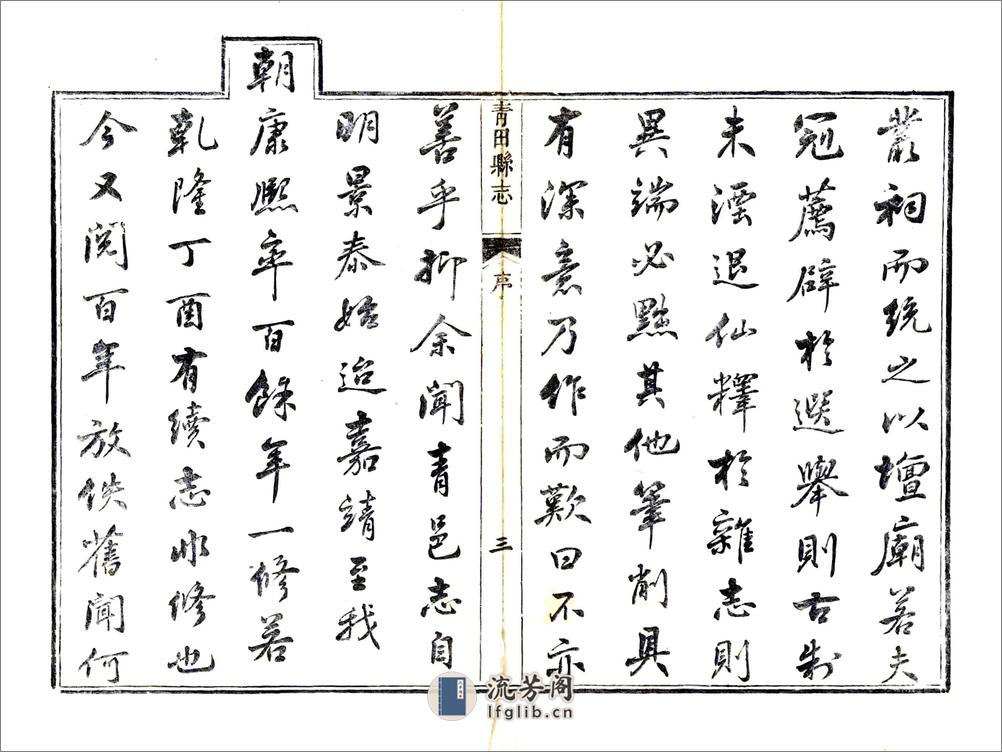 叢祠而統之以壇廟若夫
冠薦辟於選舉則古制
未湮退仙釋於雜志則
異端必黜其他筆削具
有深意乃作而歎曰不亦
青田縣志
序
三
善乎抑余聞青邑志自
明景泰始迨嘉靖至我
朝康熙率百餘年一修若
乾隆丁酉有續志非修也
今又閱百年放佚舊聞何
流芳阁
lfglib.cn